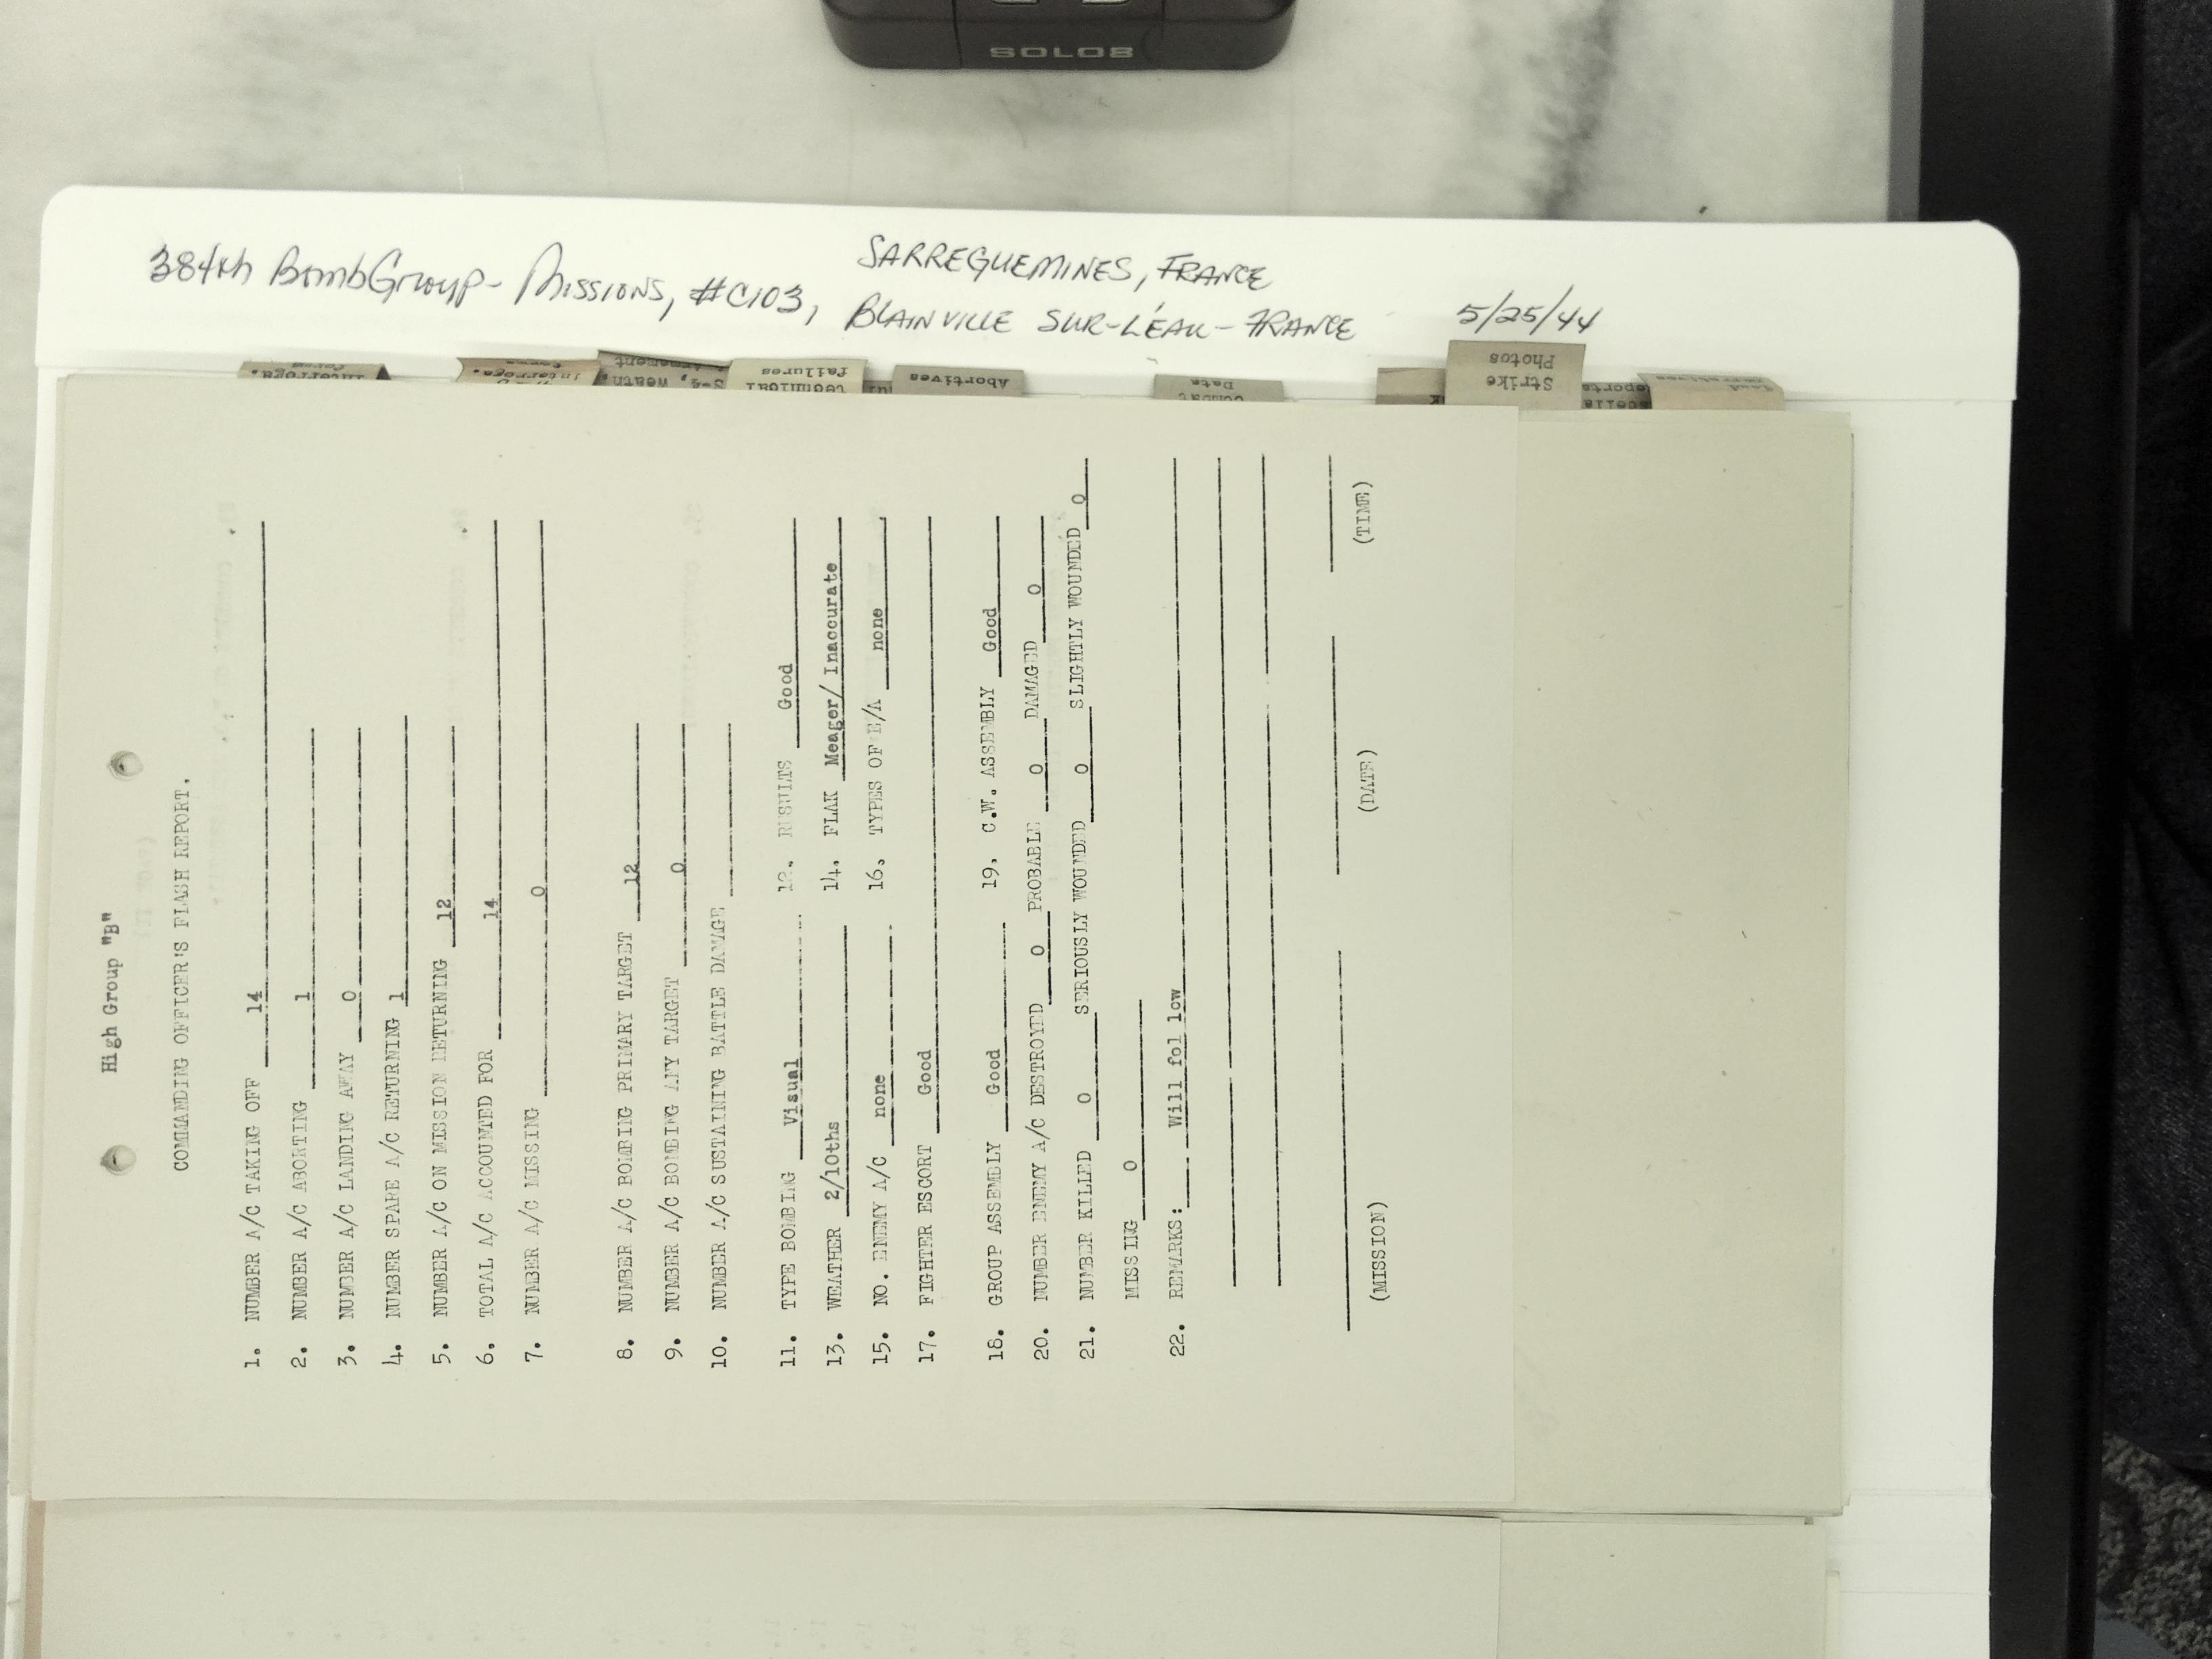 SOLO8
384th BombGroup- Missions, #C103,
SARREGUEMINES, FRANCE
BLAINVILLE SUR-L'ÉAU - FRANCE
5/25/44
Interroga.
Interroga.
failures
technical
Abortives
Combat
Data
Strike
Photos
High Group "B"
COMMANDING OFFICER'S FLASH REPORT.
1. NUMBER A/C TAKING OFF 14
2. NUMBER A/C ABORTING 1
3. NUMBER A/C LANDING AWAY 0
4. NUMBER SPARE A/C RETURNING 1
5. NUMBER A/C ON MISSION RETURNING 12
6. TOTAL A/C ACCOUNTED FOR 14
7. NUMBER A/C MISSING 0
8. NUMBER A/C BOMBING PRIMARY TARGET 12
9. NUMBER A/C BOMBING ANY TARGET 0
10. NUMBER A/C SUSTAINING BATTLE DAMAGE
11. TYPE BOMBING Visual 12. RESULTS Good
13. WEATHER 2/10ths 14. FLAK Meager/ Inaccurate
15. NO. ENEMY A/C none 16. TYPES OF E/A none
17. FIGHTER ESCORT Good
18. GROUP ASSEMBLY Good 19. C.W. ASSEMBLY Good
20. NUMBER ENEMY A/C DESTROYED 0 PROBABLE 0 DAMAGED 0
21. NUMBER KILLED 0 SERIOUSLY WOUNDED 0 SLIGHTLY WOUNDED 0
MISSING 0
22. REMARKS: Will fol low
(MISSION) (DATE) (TIME)